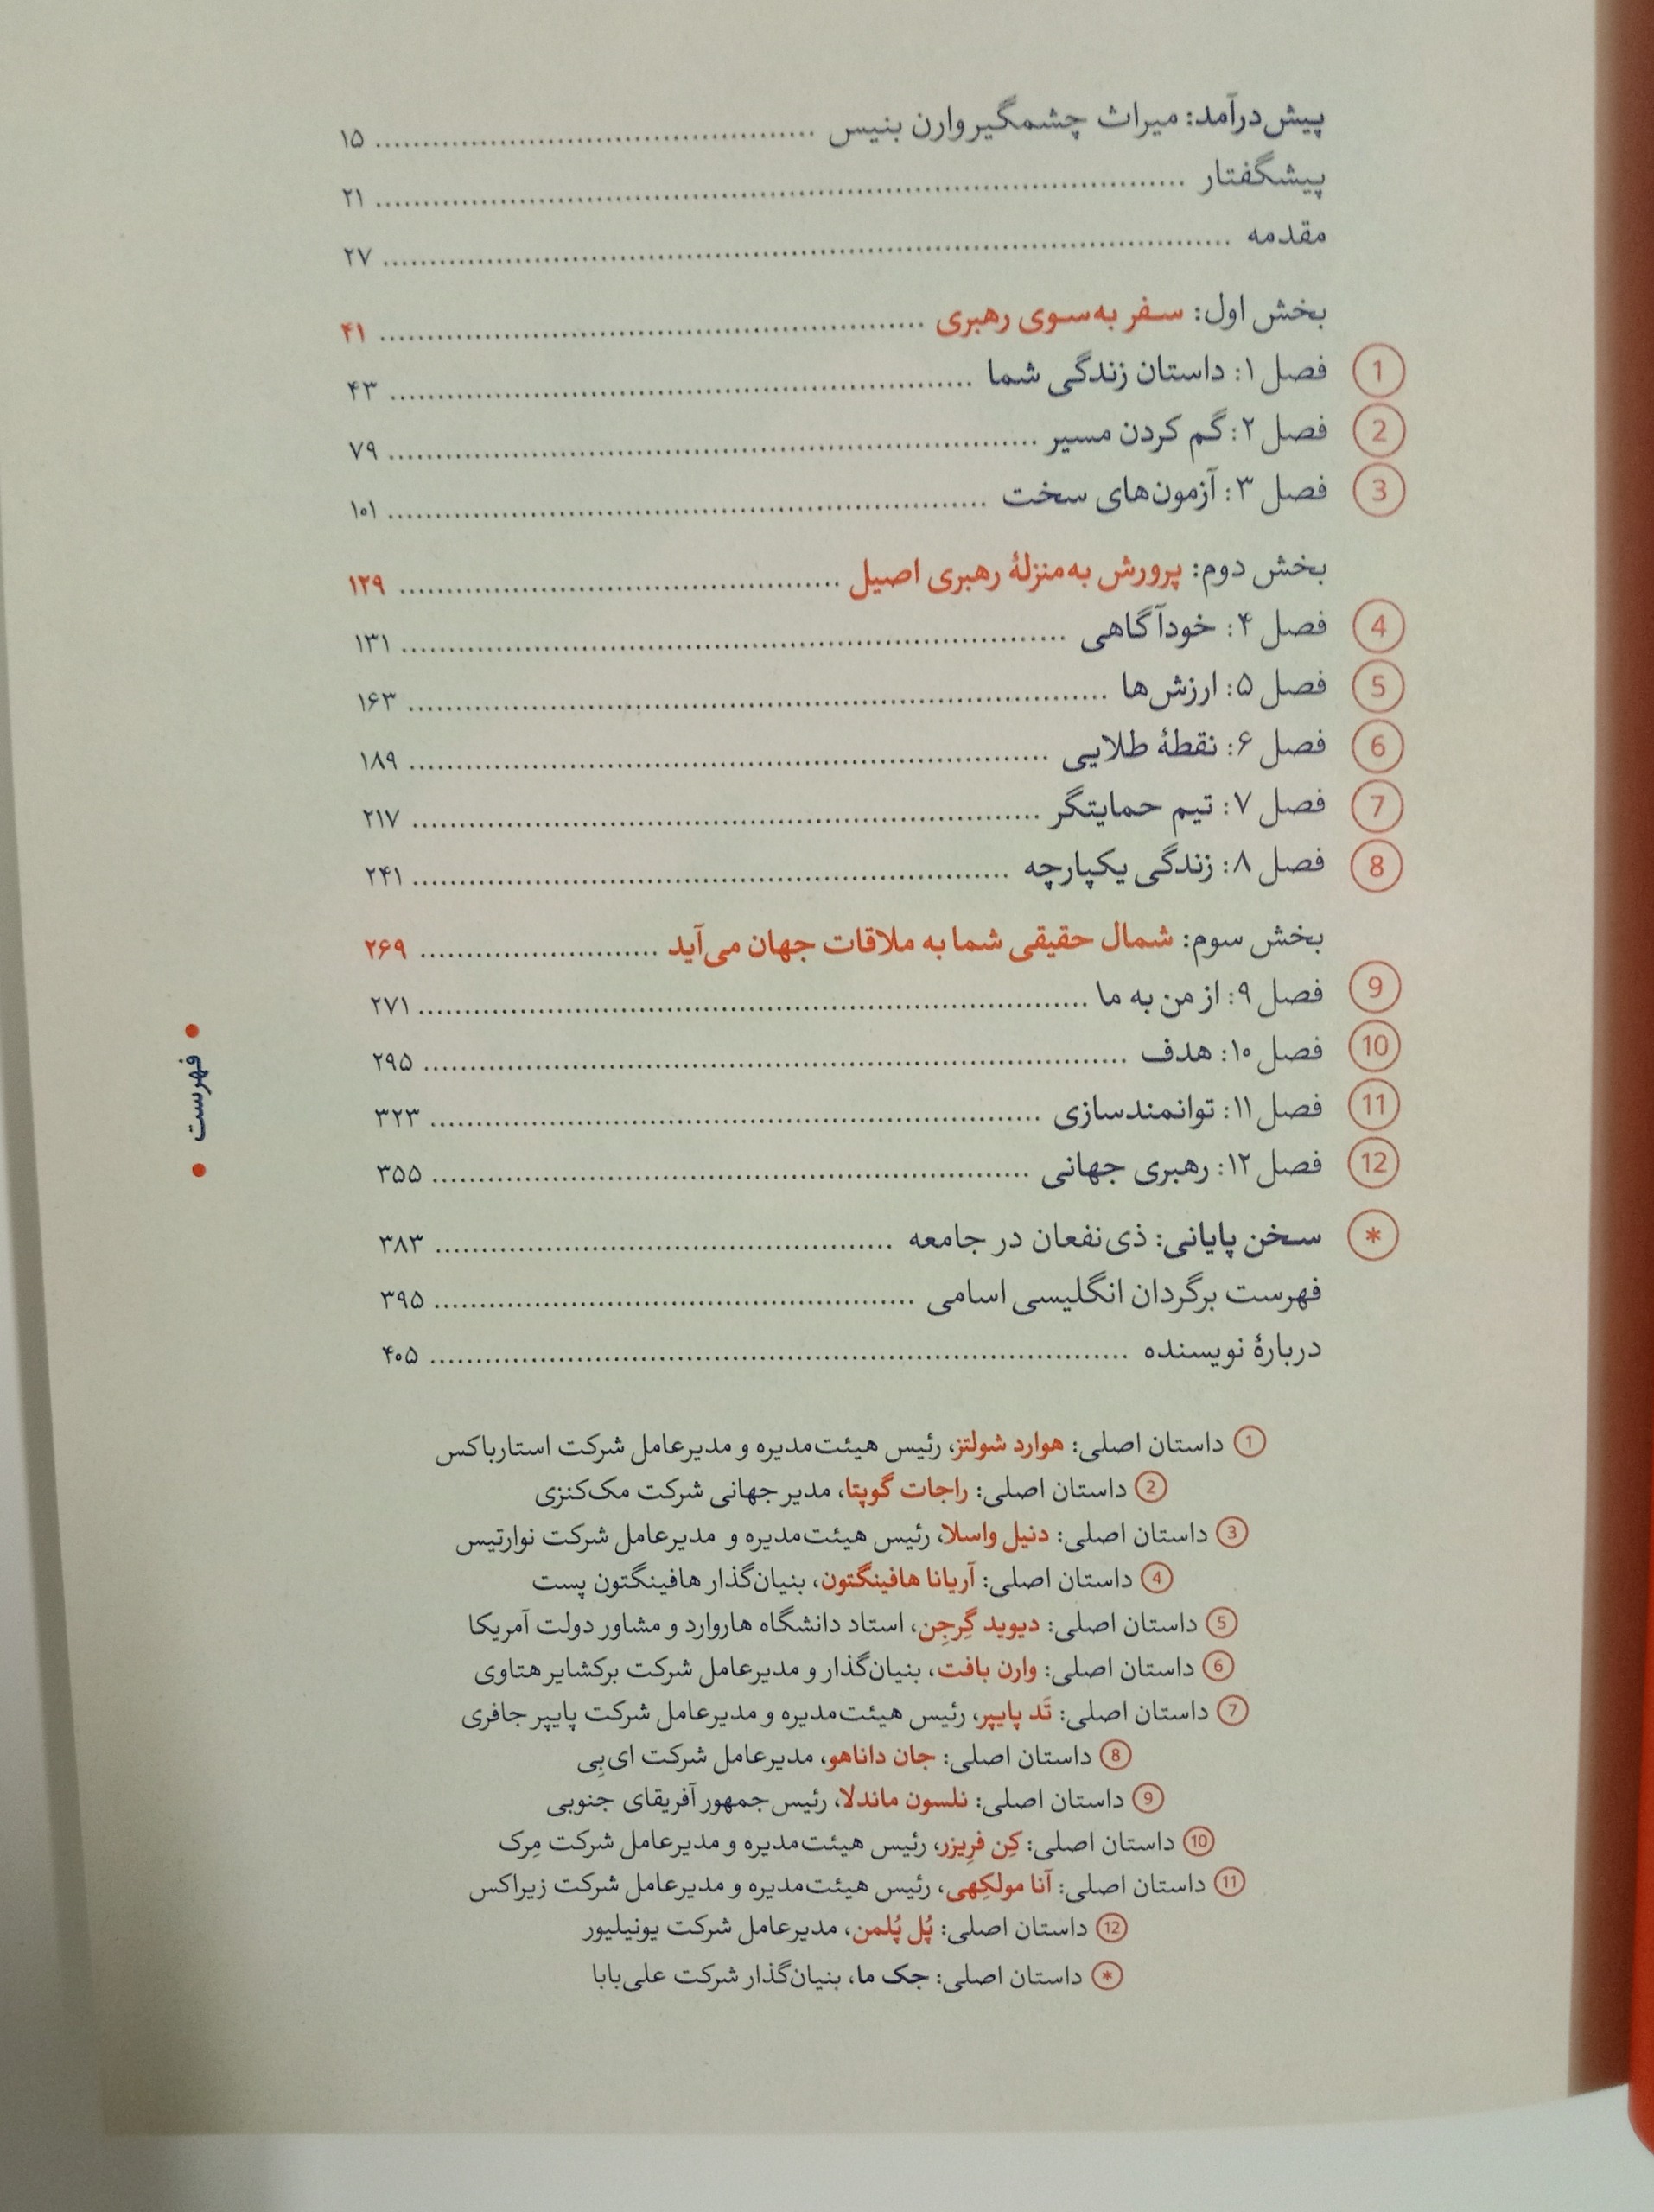 پیش‌درآمد: میراث چشمگیر وارن بنیس ........ ۱۵
پیشگفتار ........ ۲۱
مقدمه ........ ۲۷
بخش اول: سفر به‌سوی رهبری ........ ۴۱
1 فصل ۱: داستان زندگی شما ........ ۴۳
2 فصل ۲: گم کردن مسیر ........ ۷۹
3 فصل ۳: آزمون‌های سخت ........ ۱۰۱
بخش دوم: پرورش به‌منزلهٔ رهبری اصیل ........ ۱۲۹
4 فصل ۴: خودآگاهی ........ ۱۳۱
5 فصل ۵: ارزش‌ها ........ ۱۶۳
6 فصل ۶: نقطهٔ طلایی ........ ۱۸۹
7 فصل ۷: تیم حمایتگر ........ ۲۱۷
8 فصل ۸: زندگی یکپارچه ........ ۲۴۱
بخش سوم: شمال حقیقی شما به ملاقات جهان می‌آید ........ ۲۶۹
9 فصل ۹: از من به ما ........ ۲۷۱
10 فصل ۱۰: هدف ........ ۲۹۵
11 فصل ۱۱: توانمندسازی ........ ۳۲۳
12 فصل ۱۲: رهبری جهانی ........ ۳۵۵
* سخن پایانی: ذی‌نفعان در جامعه ........ ۳۸۳
فهرست برگردان انگلیسی اسامی ........ ۳۹۵
دربارهٔ نویسنده ........ ۴۰۵
1 داستان اصلی: هوارد شولتز، رئیس هیئت‌مدیره و مدیرعامل شرکت استارباکس
2 داستان اصلی: راجات گوپتا، مدیر جهانی شرکت مک‌کنزی
3 داستان اصلی: دنیل واسلا، رئیس هیئت‌مدیره و مدیرعامل شرکت نوارتیس
4 داستان اصلی: آریانا هافینگتون، بنیان‌گذار هافینگتون پست
5 داستان اصلی: دیوید گِرجِن، استاد دانشگاه هاروارد و مشاور دولت آمریکا
6 داستان اصلی: وارن بافت، بنیان‌گذار و مدیرعامل شرکت برکشایر هتاوی
7 داستان اصلی: تَد پایپر، رئیس هیئت‌مدیره و مدیرعامل شرکت پایپر جافری
8 داستان اصلی: جان داناهو، مدیرعامل شرکت ای‌بِی
9 داستان اصلی: نلسون ماندلا، رئیس‌جمهور آفریقای جنوبی
10 داستان اصلی: کِن فرِیزر، رئیس هیئت‌مدیره و مدیرعامل شرکت مِرک
11 داستان اصلی: آنا مولکِهی، رئیس هیئت‌مدیره و مدیرعامل شرکت زیراکس
12 داستان اصلی: پُل پُلمن، مدیرعامل شرکت یونیلیور
* داستان اصلی: جک ما، بنیان‌گذار شرکت علی‌بابا
• فهرست •